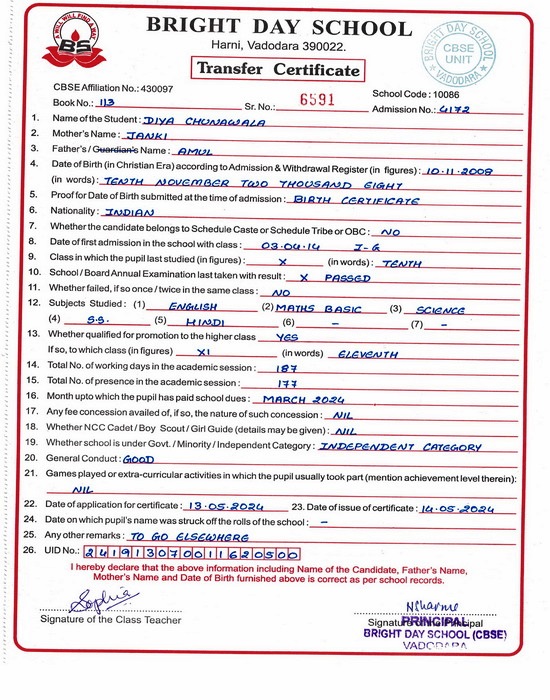 A WILL WILL FIND A WAY
BS
BRIGHT DAY SCHOOL
Harni, Vadodara 390022.
Transfer Certificate
BRIGHT DAY SCHOOL
CBSE
UNIT
VADODARA
CBSE Affiliation No.: 430097
School Code : 10086
Book No.: 113 Sr. No.: 6591 Admission No.: 4172
1. Name of the Student : DIYA CHUNAWALA
2. Mother's Name : JANKI
3. Father's / Guardian's Name : AMUL
4. Date of Birth (in Christian Era) according to Admission & Withdrawal Register (in figures) : 10.11.2008
(in words) : TENTH NOVEMBER TWO THOUSAND EIGHT
5. Proof for Date of Birth submitted at the time of admission : BIRTH CERTIFICATE
6. Nationality : INDIAN
7. Whether the candidate belongs to Schedule Caste or Schedule Tribe or OBC : NO
8. Date of first admission in the school with class : 03.04.14 I-G
9. Class in which the pupil last studied (in figures) : X (in words) : TENTH
10. School / Board Annual Examination last taken with result : X PASSED
11. Whether failed, if so once / twice in the same class : NO
12. Subjects Studied : (1) ENGLISH (2) MATHS BASIC (3) SCIENCE
(4) S.S. (5) HINDI (6) – (7) –
13. Whether qualified for promotion to the higher class YES
If so, to which class (in figures) XI (in words) ELEVENTH
14. Total No. of working days in the academic session : 187
15. Total No. of presence in the academic session : 177
16. Month upto which the pupil has paid school dues : MARCH 2024
17. Any fee concession availed of, if so, the nature of such concession : NIL
18. Whether NCC Cadet / Boy Scout / Girl Guide (details may be given) : NIL
19. Whether school is under Govt. / Minority / Independent Category : INDEPENDENT CATEGORY
20. General Conduct : GOOD
21. Games played or extra-curricular activities in which the pupil usually took part (mention achievement level therein) :
NIL
22. Date of application for certificate : 13.05.2024 23. Date of issue of certificate : 14.05.2024
24. Date on which pupil's name was struck off the rolls of the school : –
25. Any other remarks : TO GO ELSEWHERE
26. UID No.: 241913070011620500
I hereby declare that the above information including Name of the Candidate, Father's Name,
Mother's Name and Date of Birth furnished above is correct as per school records.
Sophia
Signature of the Class Teacher
NSharma
Signature of the Principal
PRINCIPAL
BRIGHT DAY SCHOOL (CBSE)
VADODARA